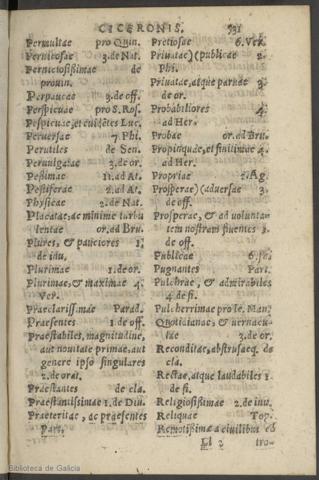 CICERONIS. 531
Permultae pro Quin.
Perniciosae 3.de Nat.
Perniciosißimae de
prouin.
Perpaucae 3.de off.
Perspicuae pro S.Ros.
Perspicuae, et euidẽtes Luc.
Peruersae 7. Phi.
Perutiles de Sen.
Peruulgatae 3.de or.
Peßimae 11.ad At.
Pestiferae 2.ad At.
Physicae 2.de Nat.
Placatae, ac minime turbu
lentae or.ad Bru.
Plures, & pauciores 1.
de idu.
Plurimae 1.de or.
Plurimae, & maximae 4.
Ver.
Praeclariss.mae Parad.
Praesentes 1 de off.
Praestabiles, magnitudine,
aut nouitate primae, aut
genere ipso singulares
2.de orat.
Praestantes de cla.
Praestantißimae 1.de Diu.
Praeteritae, ac praesentes
Part.
Pretiosae 6. Ver.
Priuatae)(publicae 2.
Phi.
Priuatae, atque paruae 3.
de or.
Probabiliores 4.
ad Her.
Probae or.ad Bru.
Propinquae, et finitimae 4.
ad Her.
Propriae 2. Ag.
Prosperae)(aduersae 3.
de off.
Prosperae, & ad volunta-
tem nostram fluentes 3.
de off.
Publicae
Pugnantes Part.
Pulchrae, & admirabiles
4 de fi.
Pulcherrimae pro le. Man.
Quotidianae, & vernacu-
lae 3.de or.
Reconditae, abstrusaeq. de
cla.
Rectae, atque laudabiles 1.
de fi.
Religiosißimae 2.de inu.
Reliquae Top.
Remotißimae a ciuilibus cõ
Ll 2 tro-
Biblioteca de Galicia